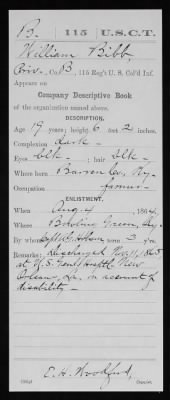 B. | 115 | U.S.C.T.
William Bibb,
Priv., Co. B, 115 Reg't U. S. Col'd Inf.
Appears on
Company Descriptive Book
of the organization named above.
DESCRIPTION.
Age 19 years; height 6 feet 2 inches.
Complexion Dark
Eyes Blk ; hair Blk
Where born Barren Co, Ky.
Occupation farmer
ENLISTMENT.
When Aug. 4, 1864.
Where Bowling Green, Ky.
By whom Capt ; term 3 y'rs.
Remarks: Discharged Nov. 11, 1865,
at U.S. Genl Hosptl New
Orleans, La. on account of
disability
E. H. Woodford,
Copyist.